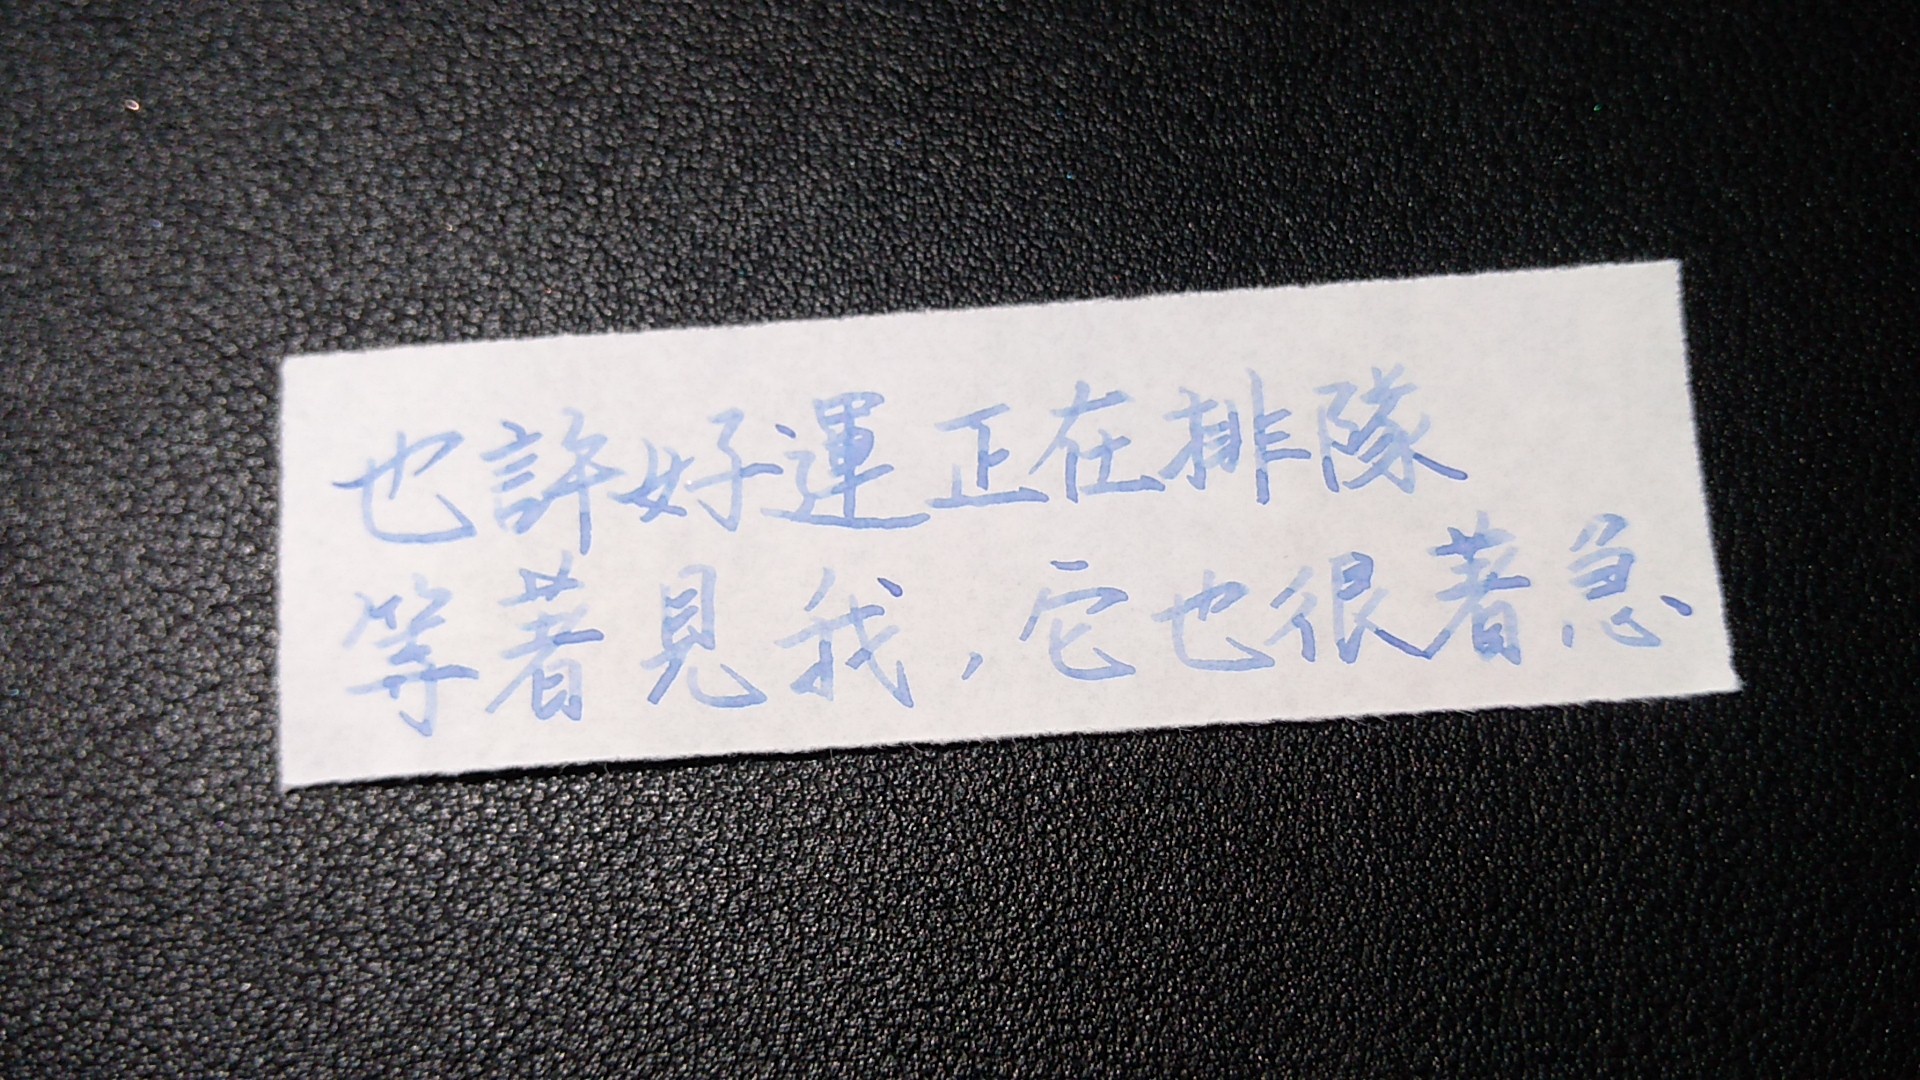 也許好運正在排隊
等著見我，它也很著急